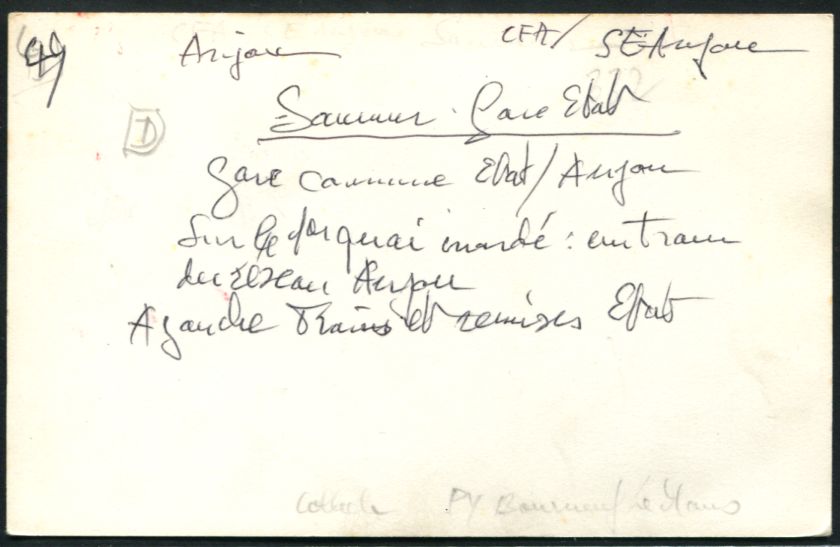 49
Anjou CFA/ St Anjou
D
Saumur. Gare Etat
Gare commune Etat/Anjou
Sur le 1er quai inondé : un train
du réseau Anjou
A gauche Trains et remises Etat
PY Bourneuf Le Mans